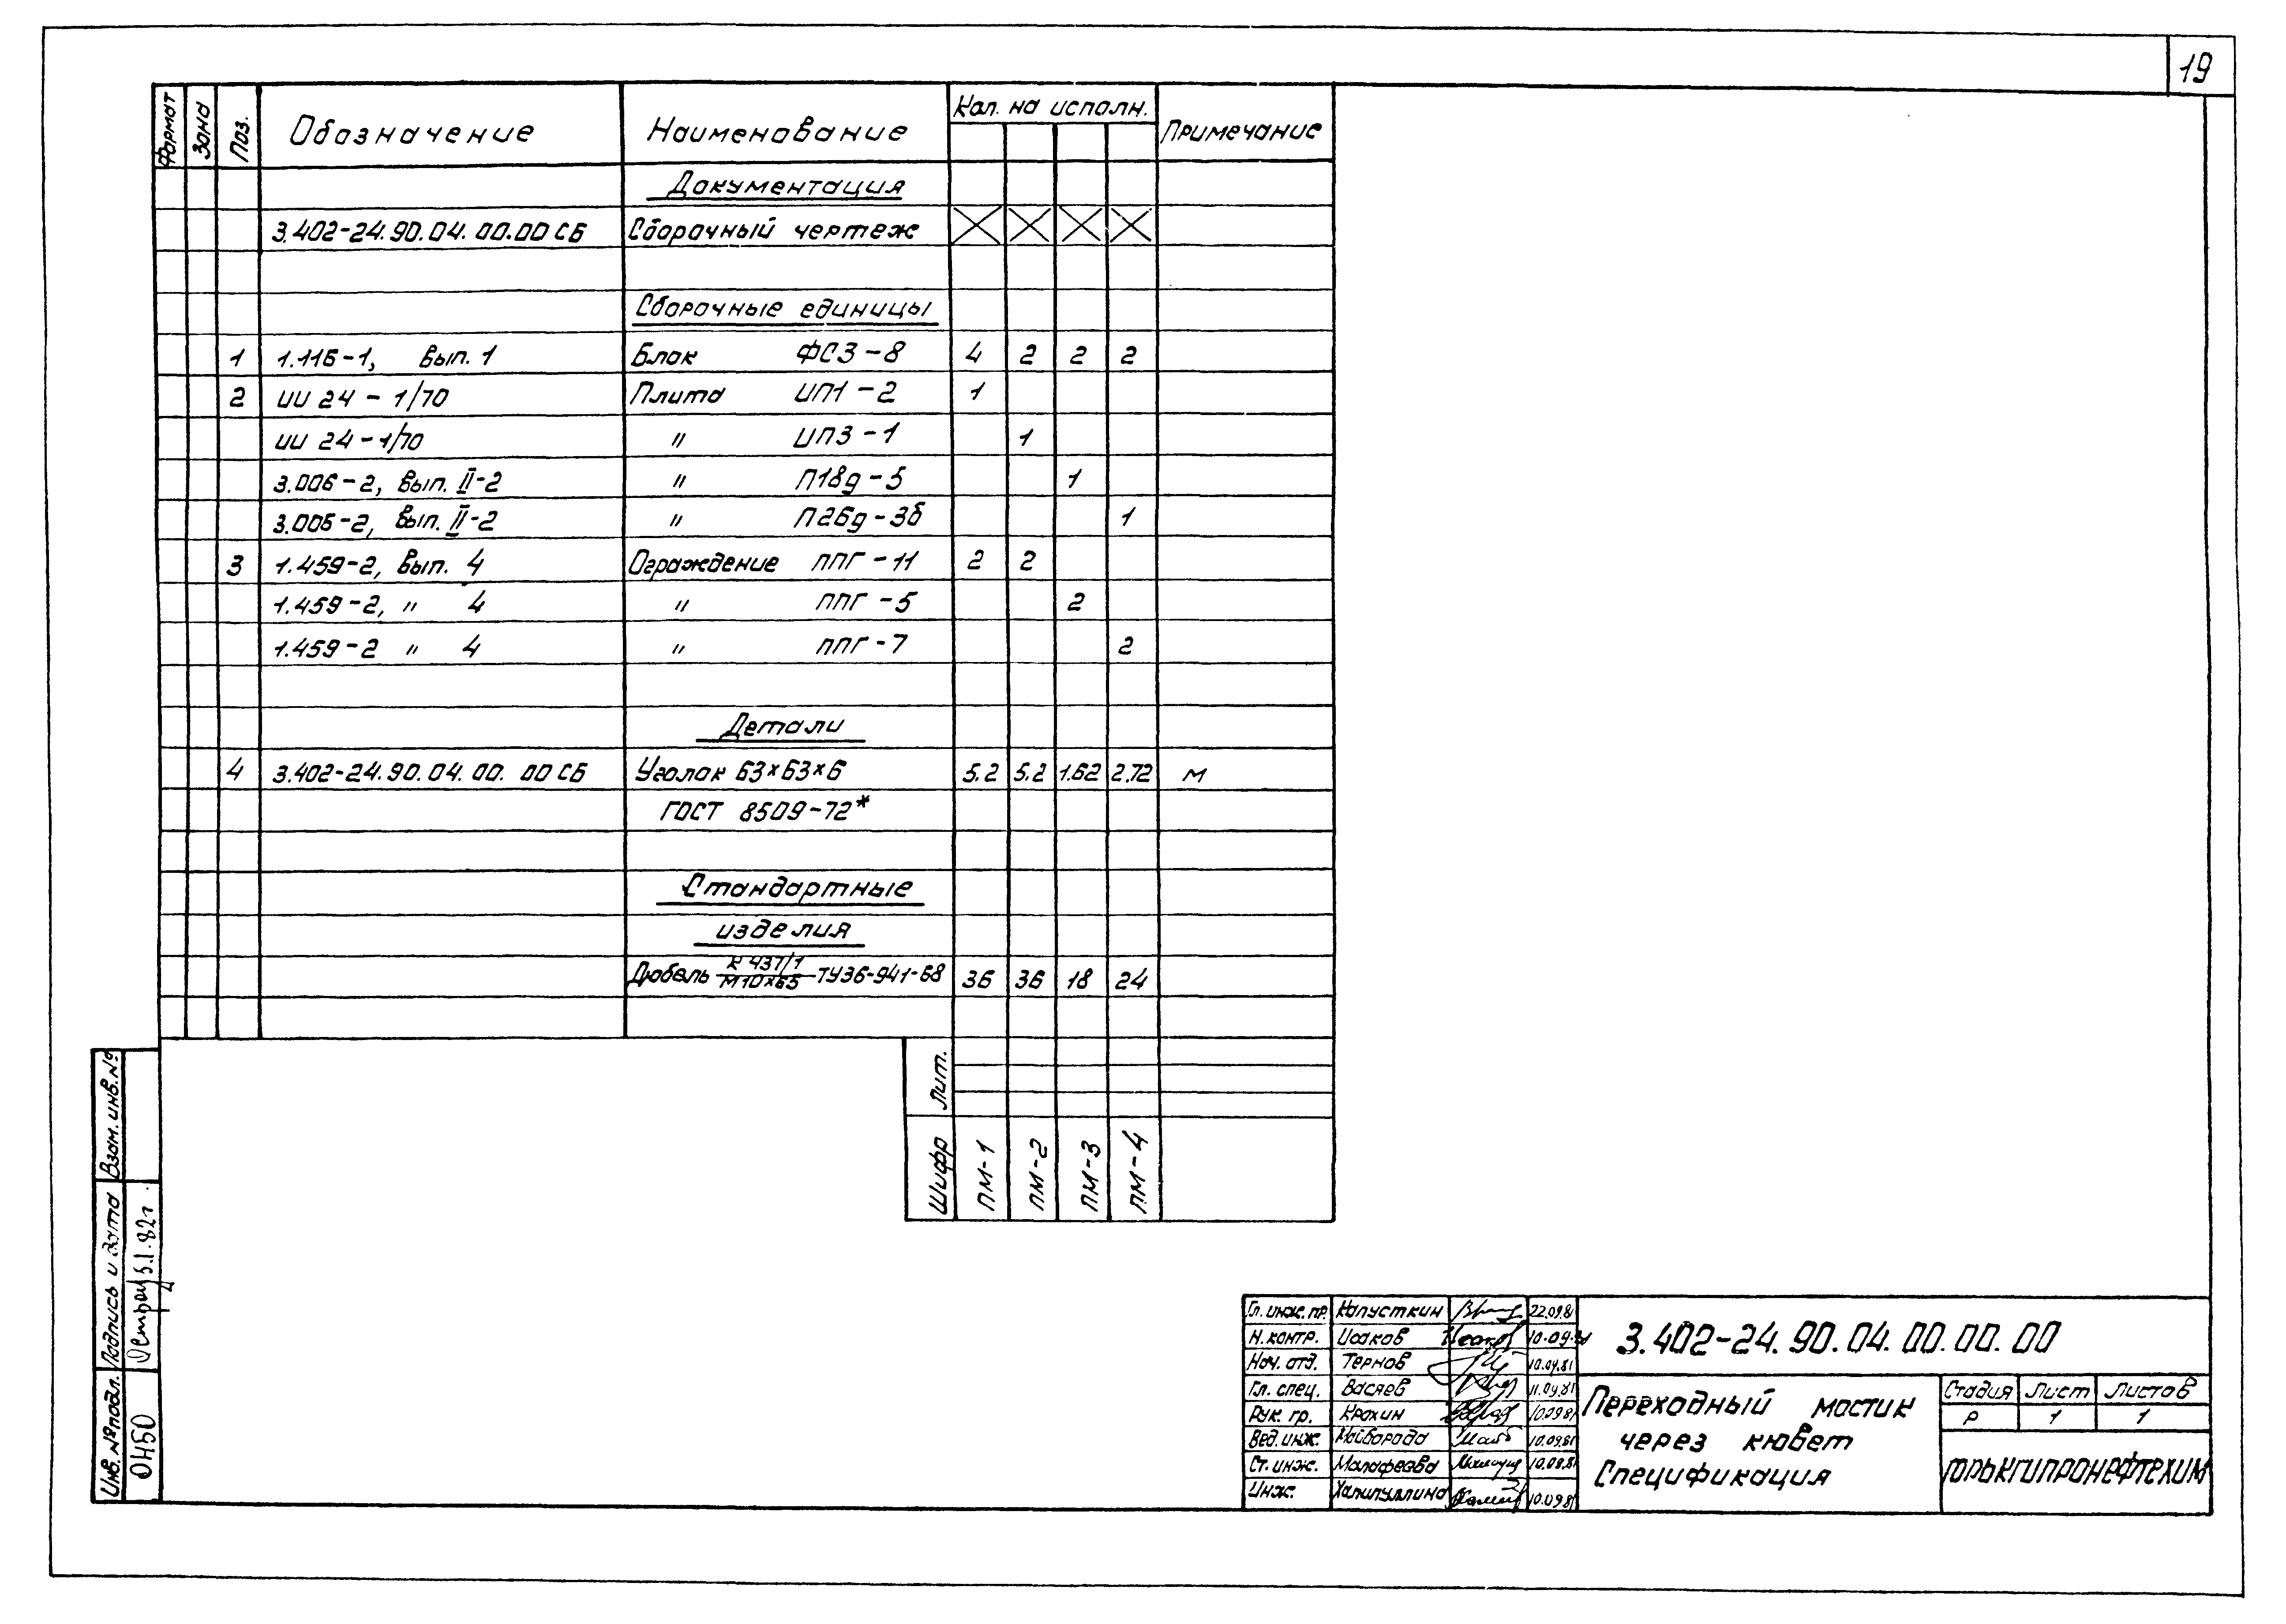 19
Формат Зона Поз. Обозначение Наименование Кол. на исполн. Примечание
Документация
3.402-24.90.04.00.00 СБ Сборочный чертеж
Сборочные единицы
1 1.116-1, вып. 1 Блок ФС3-8 4 2 2 2
2 ИИ 24-1/70 Плита ИП1-2 1
ИИ 24-1/70 " ИП3-1 1
3.006-2, вып. II-2 " П18д-5 1
3.006-2, вып. II-2 " П26д-3б 1
3 1.459-2, вып. 4 Ограждение ППГ-11 2 2
1.459-2, " 4 " ППГ-5 2
1.459-2 " 4 " ППГ-7 2
Детали
4 3.402-24.90.04.00.00 СБ Уголок 63×63×6 5.2 5.2 1.62 2.72 м
ГОСТ 8509-72*
Стандартные
изделия
Дюбель К 437/1 / М10×65 ТУ36-941-68 36 36 18 24
Лит.
Шифр ПМ-1 ПМ-2 ПМ-3 ПМ-4
Взам. инв. №
Подпись и дата 5.1.82г.
Инв. № подл. 0450
Гл. инж. пр. Капусткин 22.09.81
Н. контр. Исаков 10.09.81
Нач. отд. Тернов 10.09.81
Гл. спец. Васяев 11.09.81
Рук. гр. Крохин 10.09.81
Вед. инж. Майборода 10.09.81
Ст. инж. Малафеева 10.09.81
Инж. Халипуллина 10.09.81
3.402-24.90.04.00.00.00
Переходный мостик
через кювет
Спецификация
Стадия Лист Листов
Р 1 1
ГОРЬКГИПРОНЕФТЕХИМ